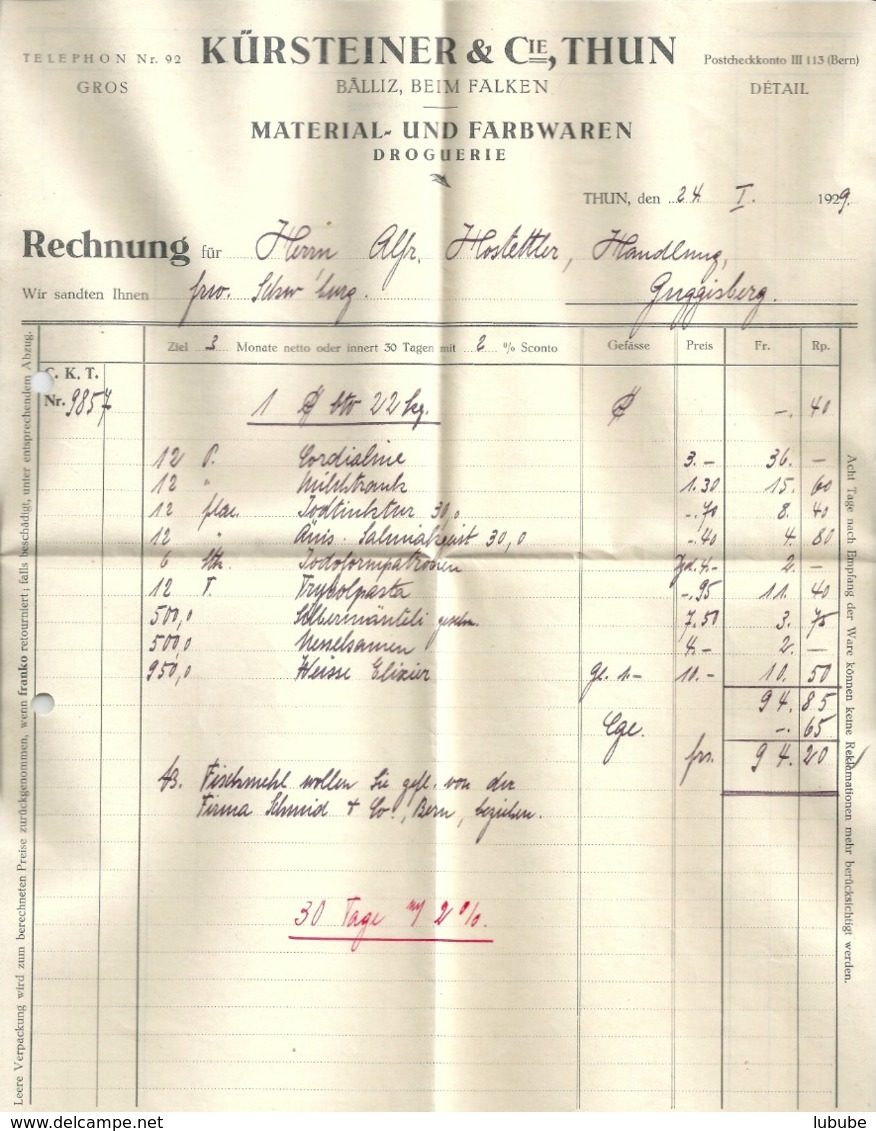 TELEPHON Nr. 92 KÜRSTEINER & CIE, THUN Postcheckkonto III 113 (Bern)
GROS BÄLLIZ, BEIM FALKEN DÉTAIL
MATERIAL- UND FARBWAREN
DROGUERIE
THUN, den 24. I. 1929.
Rechnung für Herrn Alfr. Hostettler, Handlung,
Wir sandten Ihnen frco. Schw'burg. Guggisberg.
Ziel 3 Monate netto oder innert 30 Tagen mit 2 % Sconto Gefässe Preis Fr. Rp.
C. K. T.
Nr. 9857 1 btto 22 kg. -. 40
12 P. Cordialine 3.- 36. -
12 " Milchtrank 1.30 15. 60
12 flac. Jodtinktur 30,0 -.70 8. 40
12 " Anis. Salmiakgeist 30,0 -.40 4. 80
6 Jodoformpatronen 4.- 2. -
12 T. Trycolpasta -.95 11. 40
500,0 Silbermänteli geschn. 7.50 3. 75
500,0 Nesselsamen 4.- 2. -
950,0 Weisse Elixier Ge. 1.- 10.- 10. 50
94. 85
-. 65
frs. 94. 20
NB. Fischmehl wollen Sie gefl. von der
Firma Schmid & Co., Bern, beziehen.
30 Tage m/ 2%.
Leere Verpackung wird zum berechneten Preise zurückgenommen, wenn franko retourniert; falls beschädigt, unter entsprechendem Abzug.
Acht Tage nach Empfang der Ware können keine Reklamationen mehr berücksichtigt werden.
www.delcampe.net lubube